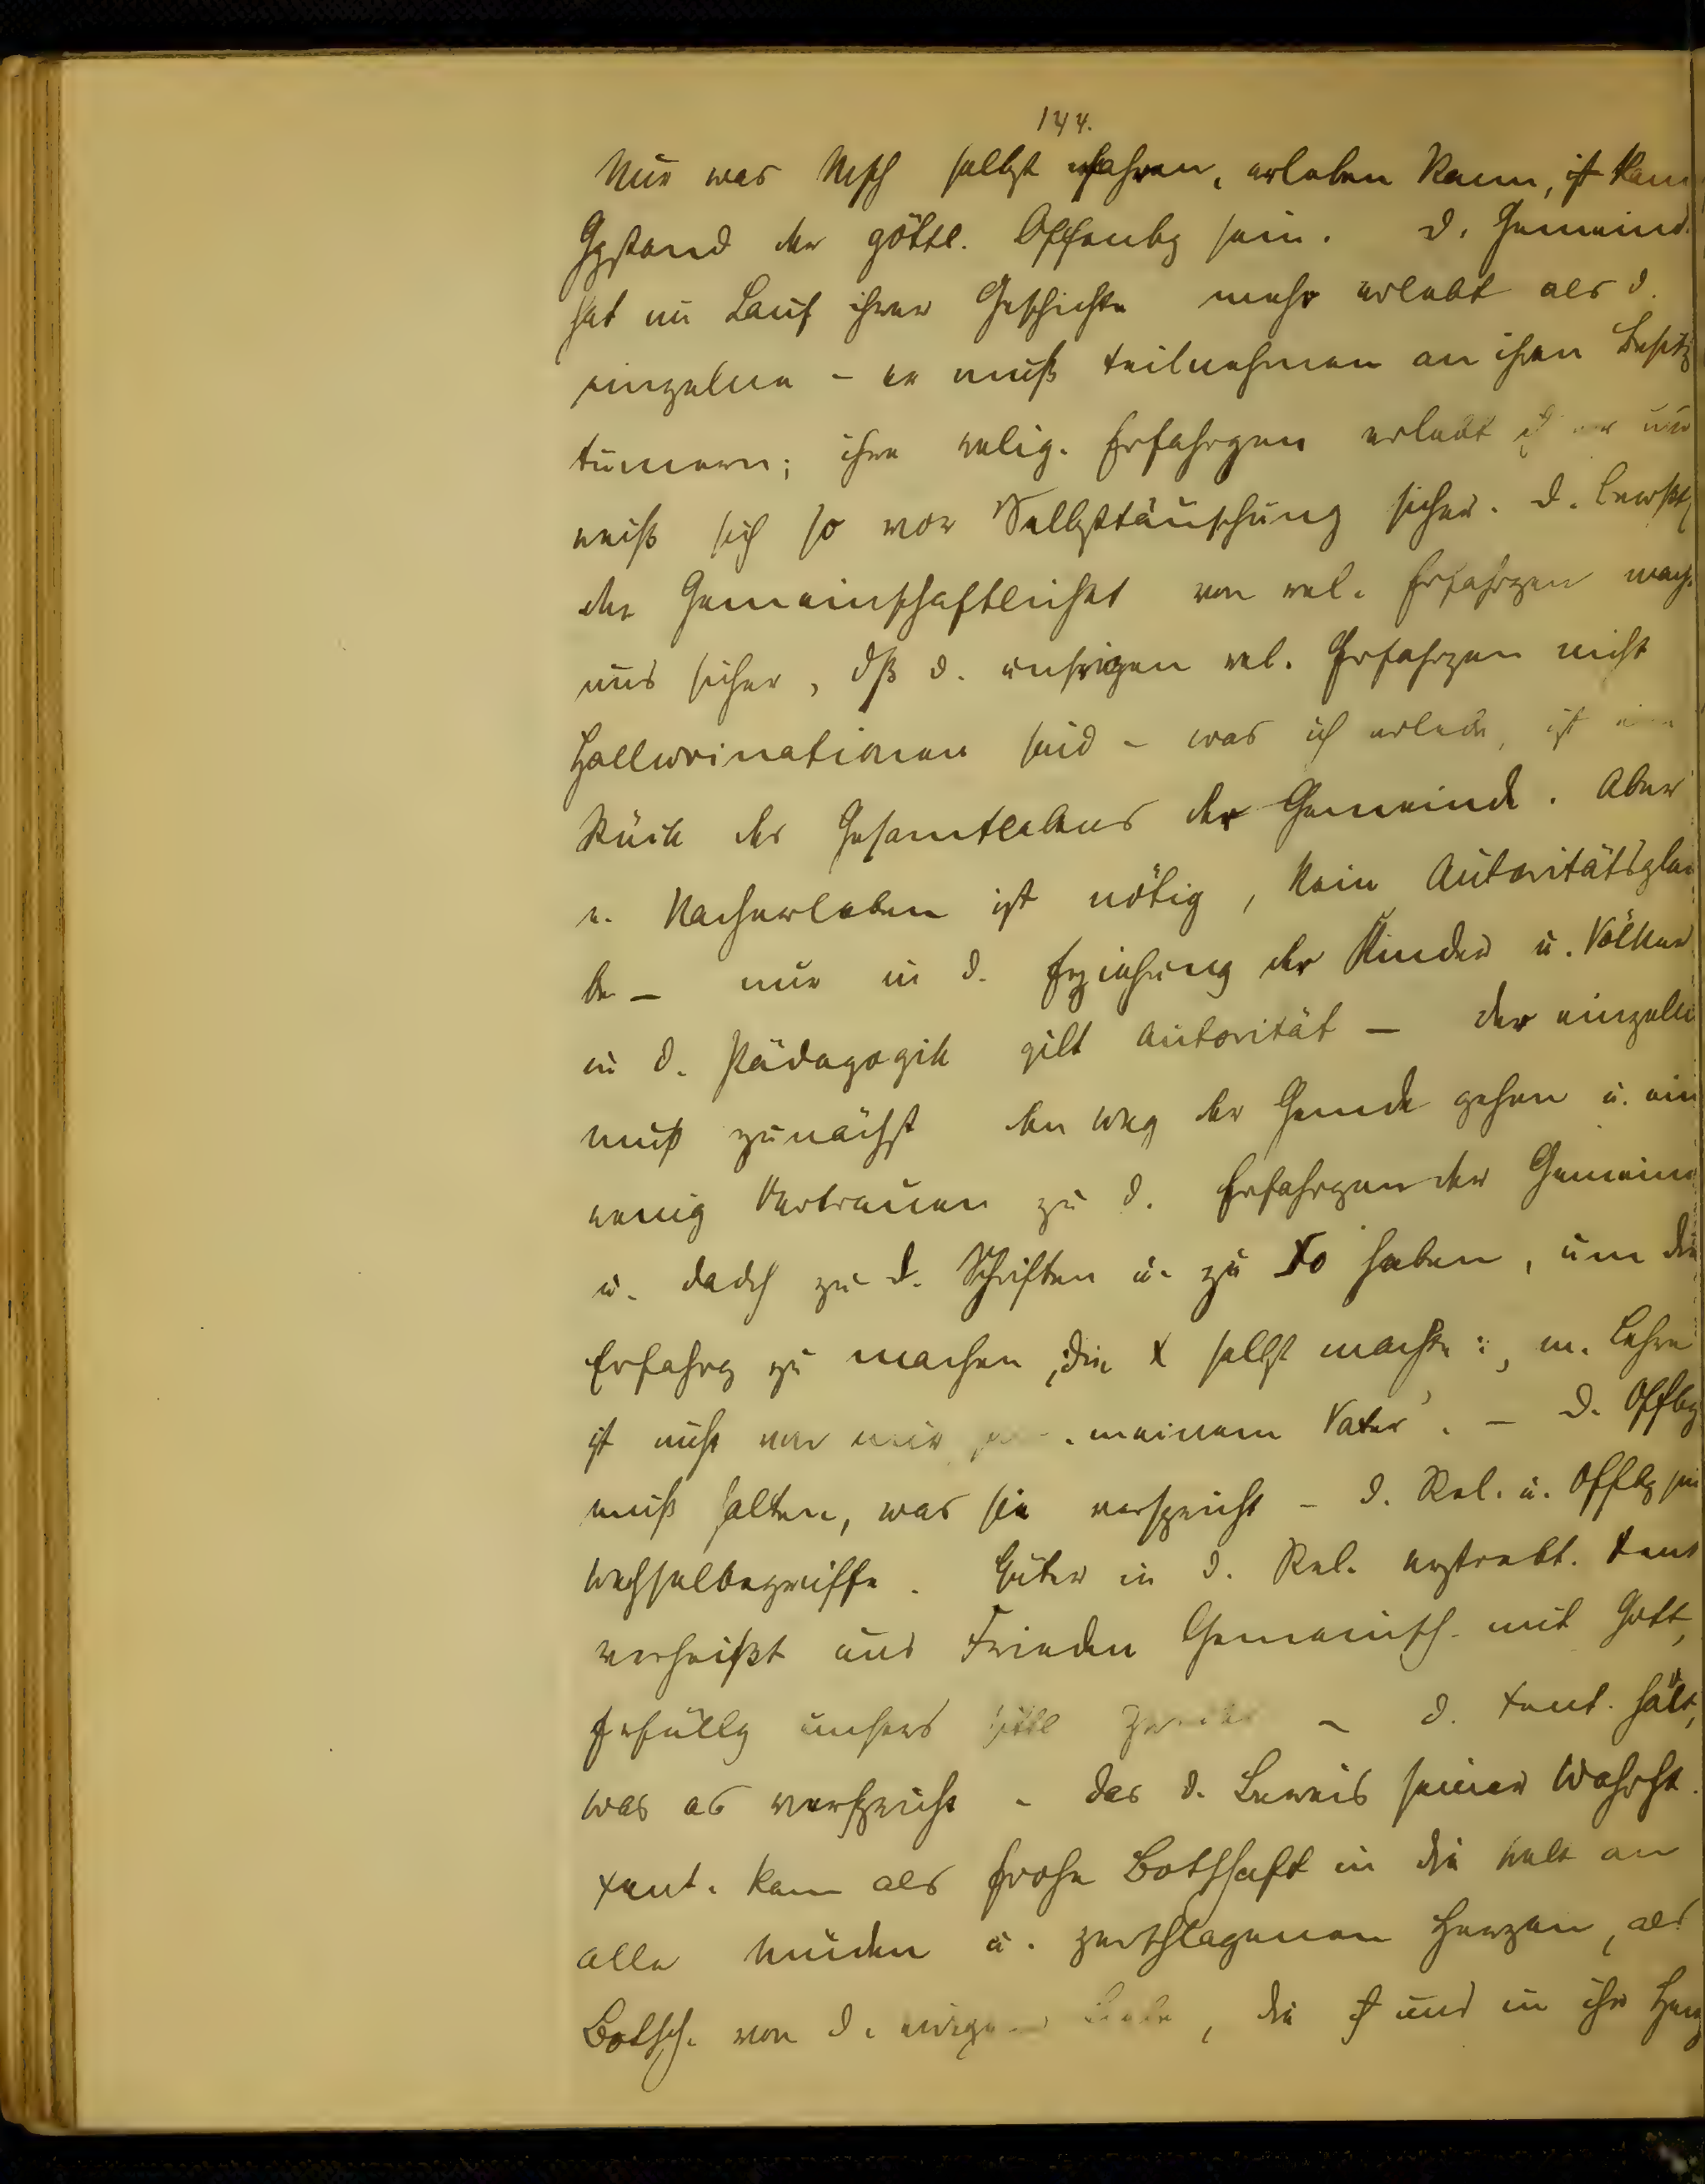 144.
Nur was Msch selbst erfahren, erleben kann, ist kann
Ggstand der göttl. Offenbg sein. D. Gemeind
hat im Lauf ihrer Geschichte mehr erlebt als d.
einzelne – er muß teilnehmen an ihren Besitz
tümern; ihre relig. Erfahrgen erlebt er nur
weiß sich so vor Selbsttäuschung sicher. D. Bewßt
der Gemeinschaftlichkt von rel. Erfahrgen mach
uns sicher, dß d. unsrigen rel. Erfahrgen nicht
Hallucinationen sind – was ich erlebe, ist ein
Stück des Gesamtlebens der Gemeinde. Aber
e. Nacherleben ist nötig, kein Autoritätsglau
be – nur in d. Erziehung der Kinder u. Völker
in d. Pädagogik gilt Autorität – der einzelne
muß zunächst den Weg der Gemde gehen u. ein
wenig Vertrauen zu d. Erfahrgen der Gemein
u. dadch zu d. Schriften u. zu Xo haben, um die
Erfahrg zu machen, die X selbst machte: „m. Lehre
ist nicht von mir meinem Vater". – D. Offbg
muß halten, was sie verspricht – d. Rel. u. Offbg sin
Wechselbegriffe. Güter in d. Rel. erstrebt. Xent
verheißt uns Frieden Gemeinsch. mit Gott,
Erfüllg unsers sittl – d. Xent. hält,
was es verspricht – das d. Beweis seiner Wahrht.
Xent. kam als frohe Botschaft in die Welt an
alle müden u. zerschlagenen Herzen, als
Botsch. von d. ewigen Liebe, die uns in ihr Herz